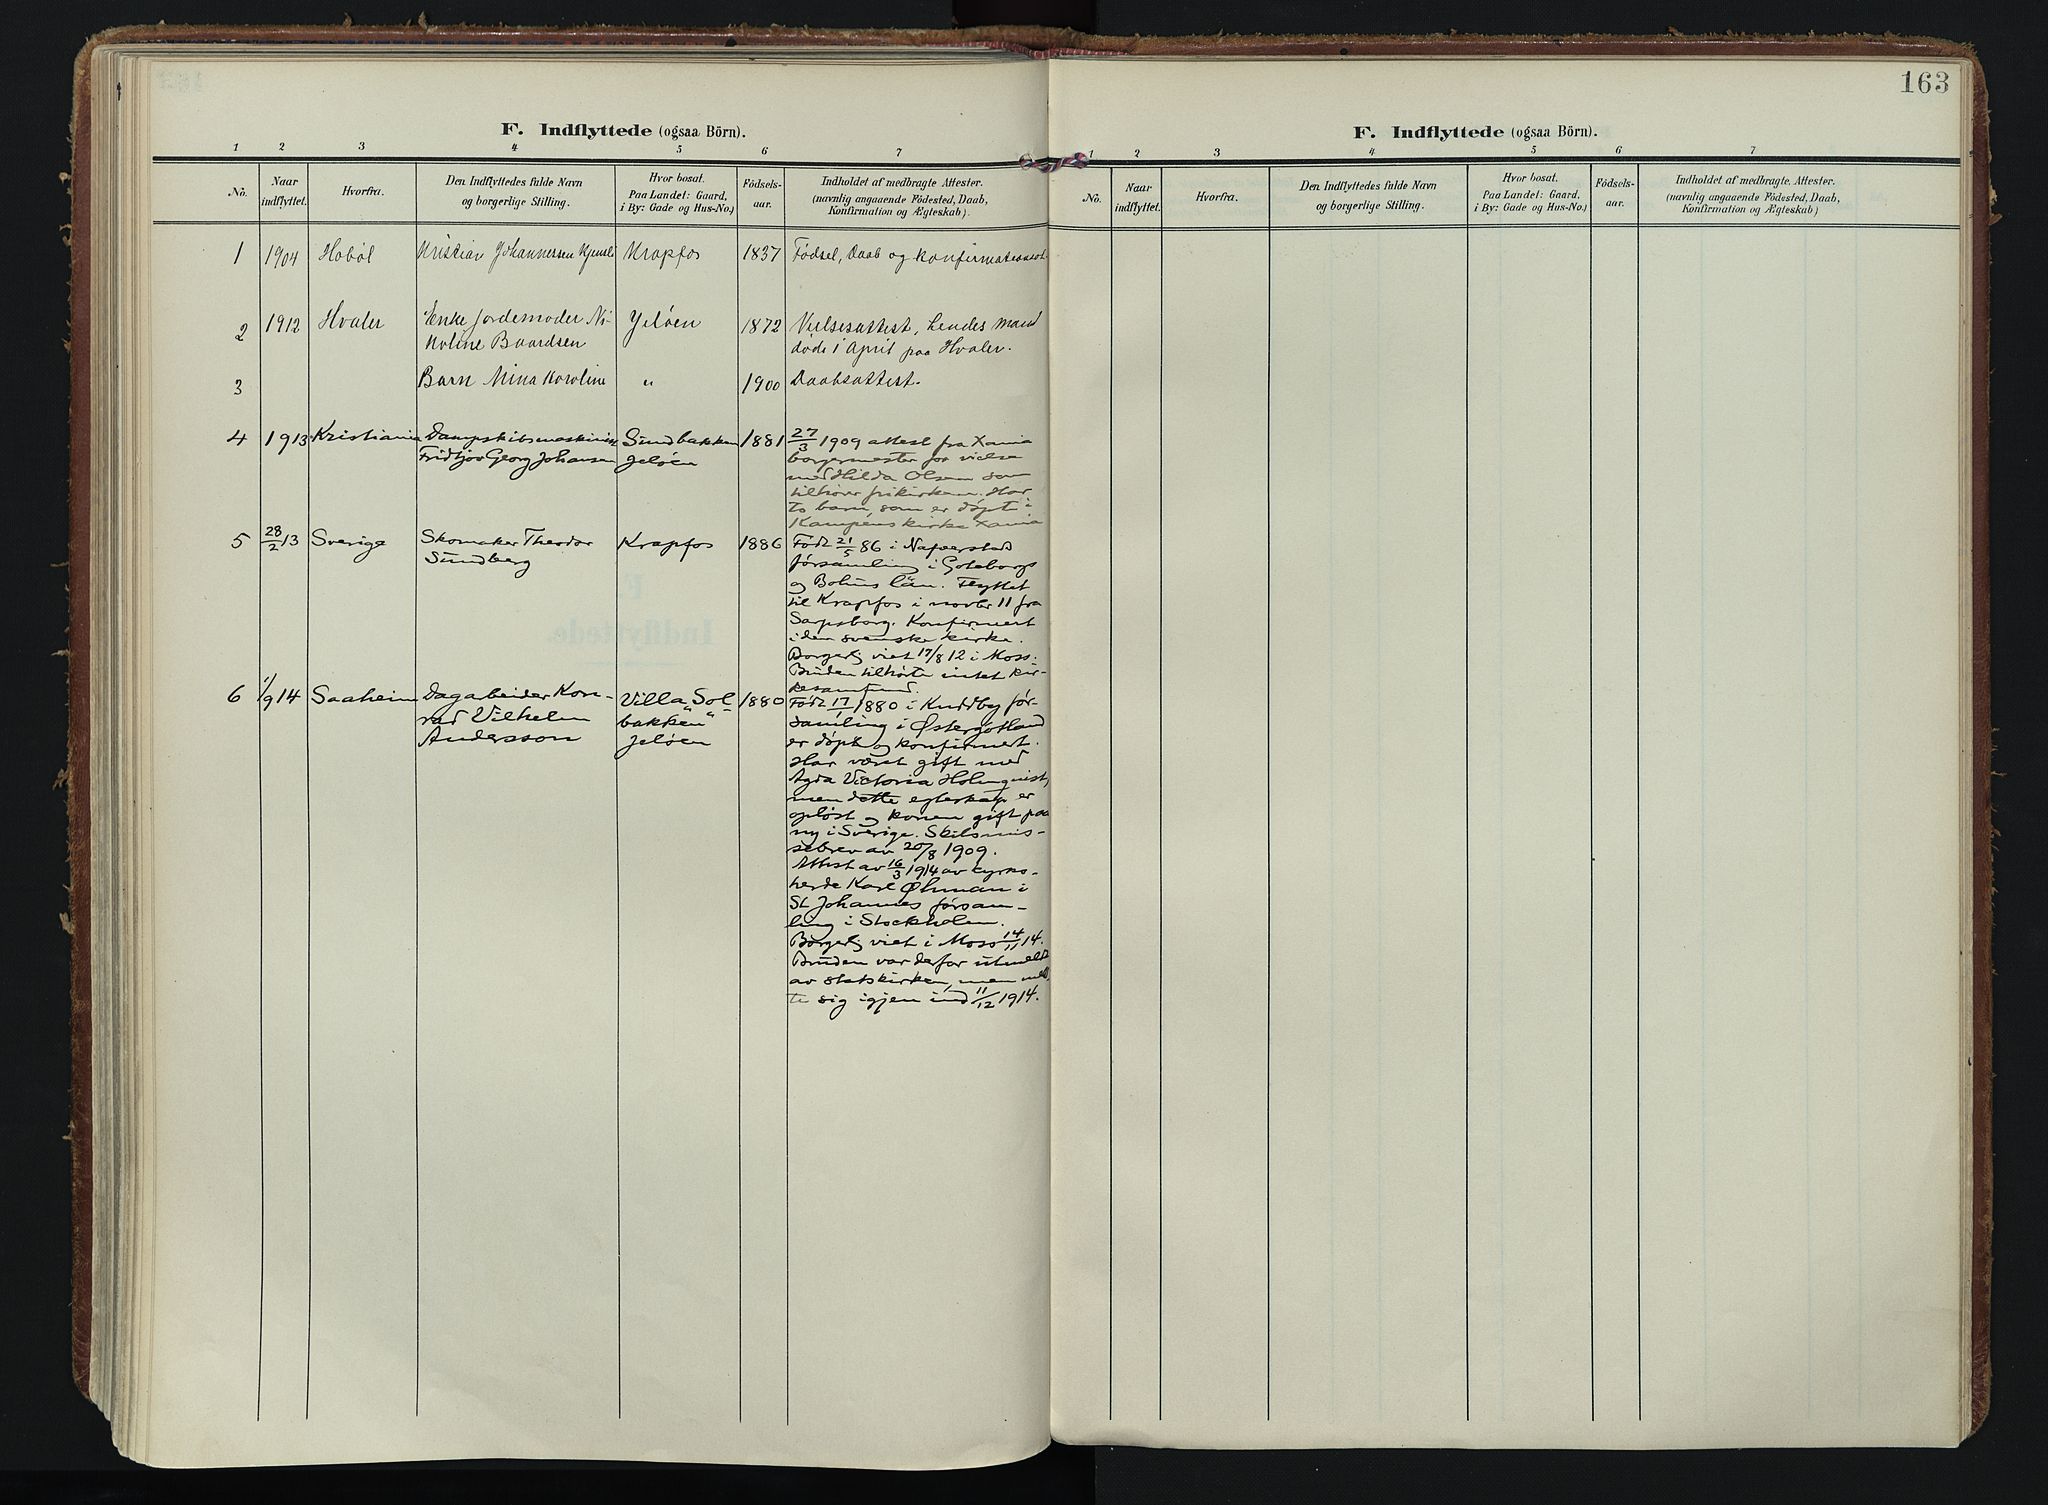 F. Indflyttede (ogsaa Börn).
1 2 3 4 5 6 7
No. Naar indflyttet. Hvorfra. Den Indflyttedes fulde Navn og borgerlige Stilling. Hvor bosat. Paa Landet: Gaard, i By: Gade og Hus-No.) Födsels-aar. Indholdet af medbragte Attester. (navnlig angaaende Födested, Daab, Konfirmation og Ægteskab).
1 1904 Hobøl Kristian Johannessen Krapfos 1837 Fødsel, Daab og konfirmationsat.
2 1912 Hvaler Enke Jordemoder Ni- Jeløen 1872 Vielsesattest, hendes mand
koline Baardsen døde 1 April paa Hvaler.
3 Barn Mina Karoline " 1900 Daabsattest.
4 1913 Kristiania Dampskibsmaskinist Sundbakken 1881 27/3 1909 attest fra Xania
Fridtjov Georg Johansen Jeløen borgermester for vielse
med Hilda Olsen som
tilhører frikirken. Har
to barn, som er døpt i
Kampens kirke Xania
5 28/2 13 Sverige Skomaker Theodor Krapfos 1886 Født 21/5 86 i Naverstad
Sundberg församling i Göteborgs
og Bohus län. Flyttet
til Krapfos i novbr 11 fra
Sarpsborg. Konfirmert
i den svenske kirke.
Borgerlig viet 17/8 12 i Moss.
Bruden tilhørte intet kir-
kesamfund.
6 1/9 14 Saaheim Dagarbeider Kon- Villa "Sol- 1880 Født 17/1 1880 i Kuddby för-
rad Vilhelm bakken" samling i Østergøtland
Andersson Jeløen er døpt og konfirmert.
Har været gift med
Agda Victoria Holmqvist,
men dette egteskap er
opløst og konen gift paa
ny i Sverige. Skilsmis-
sebrev av 20/8 1909.
Attest av 16/3 1914 av kyrko-
herde Karl Øhman i
St Johannes försam-
ling i Stockholm.
Borgerlig viet i Moss 14/11 14.
Bruden var derfor utmeldt
av statskirken, men meld-
te sig igjen ind 11/12 1914.
163
F. Indflyttede (ogsaa Börn).
1 2 3 4 5 6 7
No. Naar indflyttet. Hvorfra. Den Indflyttedes fulde Navn og borgerlige Stilling. Hvor bosat. Paa Landet: Gaard, i By: Gade og Hus-No.) Födsels-aar. Indholdet af medbragte Attester. (navnlig angaaende Födested, Daab, Konfirmation og Ægteskab)